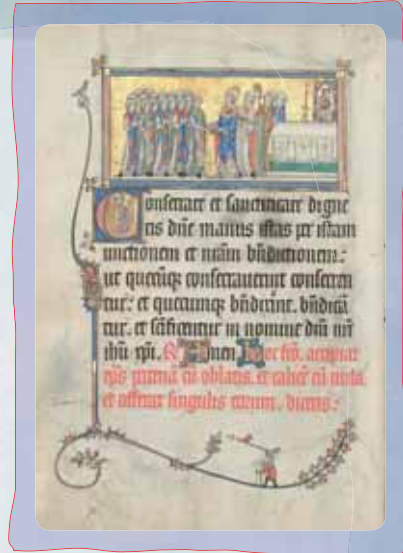 Consecrare et sanctificare digne
ris dñe manus istas per istam
unctionem et nr̃am bñdictionem:
ut quecũqz consecrauerint consecren
tur: et quecunqz bñdixerint. bñdicã
tur. et sc̃ificentur in nomine dñi nr̃i
ihũ xp̃i. R Amen Hoc fc̃o. accipiat
ep̃s patenã cũ oblatis. et calicẽ cũ
et offerat singulis eorum. dicens: